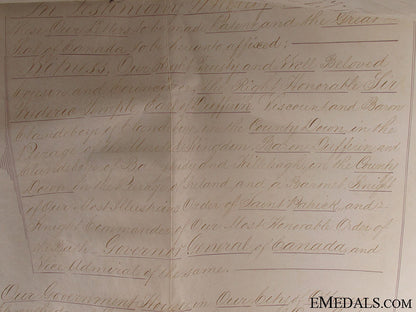 In Testimony Whereof
these Our Letters to be made Patent and the Great
Seal of Canada to be hereunto affixed:
Witness, Our Right Trusty and Well Beloved
Cousin and Councillor, The Right Honorable Sir
Frederic Temple, Earl of Dufferin, Viscount and Baron
Clandeboye of Clandeboye in the County Down, in the
Peerage of the United Kingdom, Baron Dufferin and
Clandeboye of Ballyleidy and Killeleagh, in the County
Down in the Peerage of Ireland and a Baronet, Knight
of Our Most Illustrious Order of Saint Patrick, and
Knight Commander of Our Most Honorable Order of
the Bath. Governor General of Canada, and
Vice Admiral of the same.
Our Government House, in Our City of
EMEDALS.COM